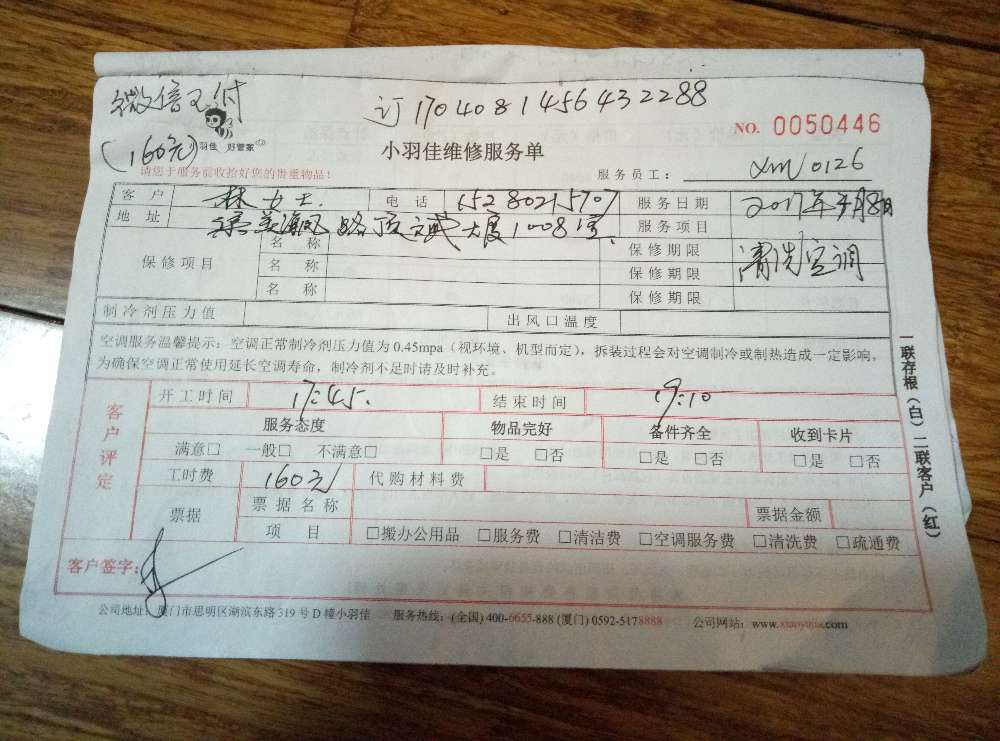 微信支付
订170408145643 2288
NO. 0050446
(160元) 小羽佳 好管家
小羽佳维修服务单
请您于服务前收拾好您的贵重物品!
服务员工: xm0126
客 户 林女士. 电 话 15280215707 服务日期 2017年4月8日
地 址 路 大厦1008室. 服务项目 清洗空调
保修项目 名 称 保修期限
名 称 保修期限
名 称 保修期限
制冷剂压力值 出风口温度
空调服务温馨提示:空调正常制冷剂压力值为 0.45mpa(视环境、机型而定),拆装过程会对空调制冷或制热造成一定影响,
为确保空调正常使用延长空调寿命,制冷剂不足时请及时补充。
客户评定
开工时间 17:45. 结束时间 19:10
服务态度 物品完好 备件齐全 收到卡片
满意□ 一般□ 不满意□ □是 □否 □是 □否 □是 □否
工时费 160元 代购材料费
票据 票 据 名 称 票据金额
项 目 □搬办公用品 □服务费 □清洁费 □空调服务费 □清洗费 □疏通费
客户签字:
公司地址: 厦门市思明区湖滨东路 319 号 D 幢小羽佳 服务热线: (全国) 400-6655-888 (厦门) 0592-5178888 公司网站: www.xiaoyujia.com
一联存根(白)二联客户(红)